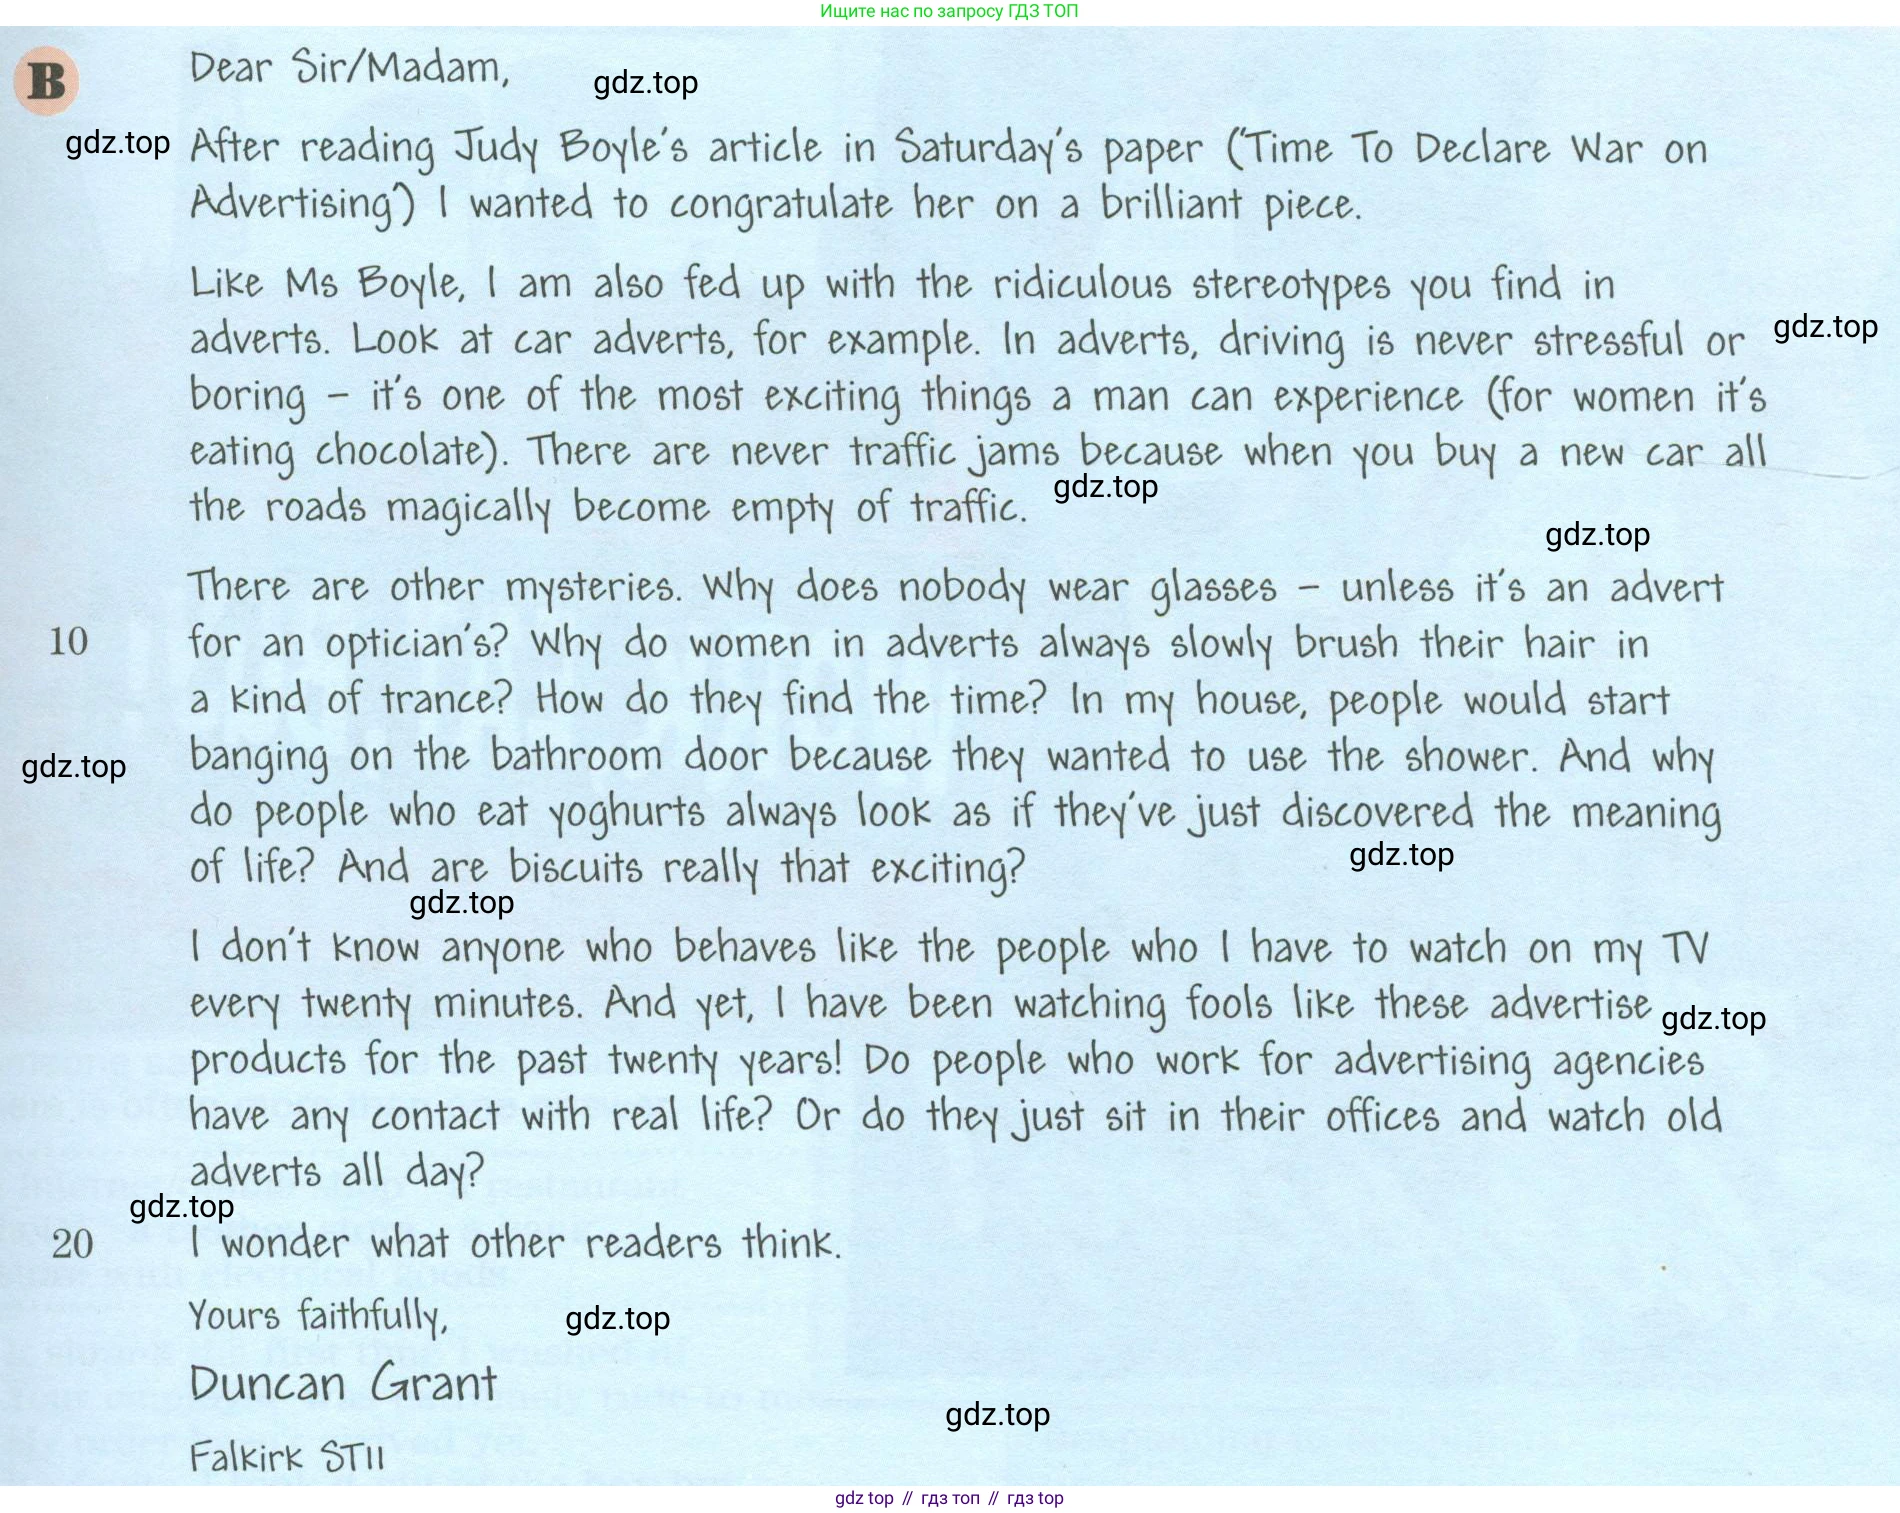 Ищите нас по запросу ГДЗ ТОП
B
Dear Sir/Madam,
gdz.top
gdz.top
After reading Judy Boyle's article in Saturday's paper ('Time To Declare War on
Advertising') I wanted to congratulate her on a brilliant piece.
Like Ms Boyle, I am also fed up with the ridiculous stereotypes you find in
gdz.top
adverts. Look at car adverts, for example. In adverts, driving is never stressful or
boring – it's one of the most exciting things a man can experience (for women it's
eating chocolate). There are never traffic jams because when you buy a new car all
gdz.top
the roads magically become empty of traffic.
gdz.top
There are other mysteries. Why does nobody wear glasses – unless it's an advert
10 for an optician's? Why do women in adverts always slowly brush their hair in
a kind of trance? How do they find the time? In my house, people would start
banging on the bathroom door because they wanted to use the shower. And why
gdz.top
do people who eat yoghurts always look as if they've just discovered the meaning
of life? And are biscuits really that exciting?
gdz.top
gdz.top
I don't know anyone who behaves like the people who I have to watch on my TV
every twenty minutes. And yet, I have been watching fools like these advertise
gdz.top
products for the past twenty years! Do people who work for advertising agencies
have any contact with real life? Or do they just sit in their offices and watch old
adverts all day?
gdz.top
20 I wonder what other readers think.
Yours faithfully,
gdz.top
Duncan Grant
gdz.top
Falkirk ST11
gdz top // гдз топ // гдз top